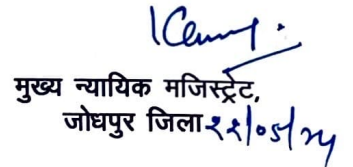 मुख्य न्यायिक मजिस्ट्रेट,
जोधपुर जिला २२/०५/२५